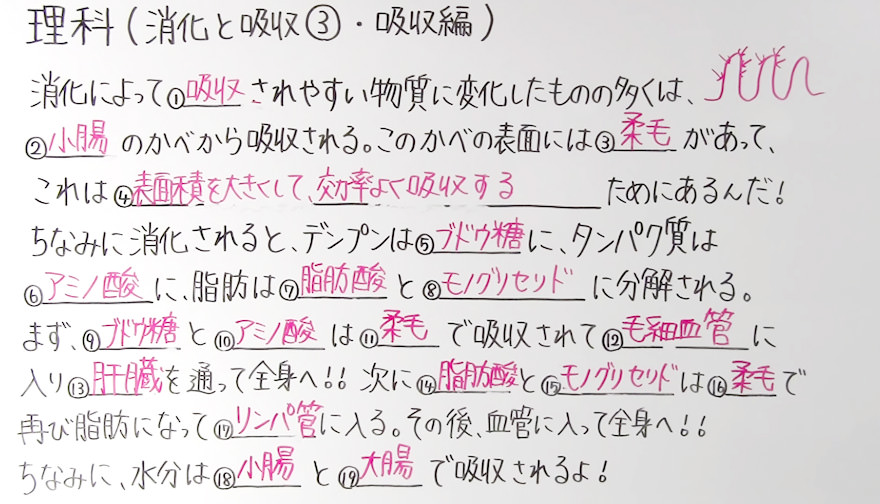 理科(消化と吸収③・吸収編)
消化によって①吸収されやすい物質に変化したものの多くは、
②小腸のかべから吸収される。このかべの表面には③柔毛があって、
これは④表面積を大きくして、効率よく吸収するためにあるんだ!
ちなみに消化されると、デンプンは⑤ブドウ糖に、タンパク質は
⑥アミノ酸に、脂肪は⑦脂肪酸と⑧モノグリセリドに分解される。
まず、⑨ブドウ糖と⑩アミノ酸は⑪柔毛で吸収されて⑫毛細血管に
入り⑬肝臓を通って全身へ!!次に⑭脂肪酸と⑮モノグリセリドは⑯柔毛で
再び脂肪になって⑰リンパ管に入る。その後、血管に入って全身へ!!
ちなみに、水分は⑱小腸と⑲大腸で吸収されるよ!